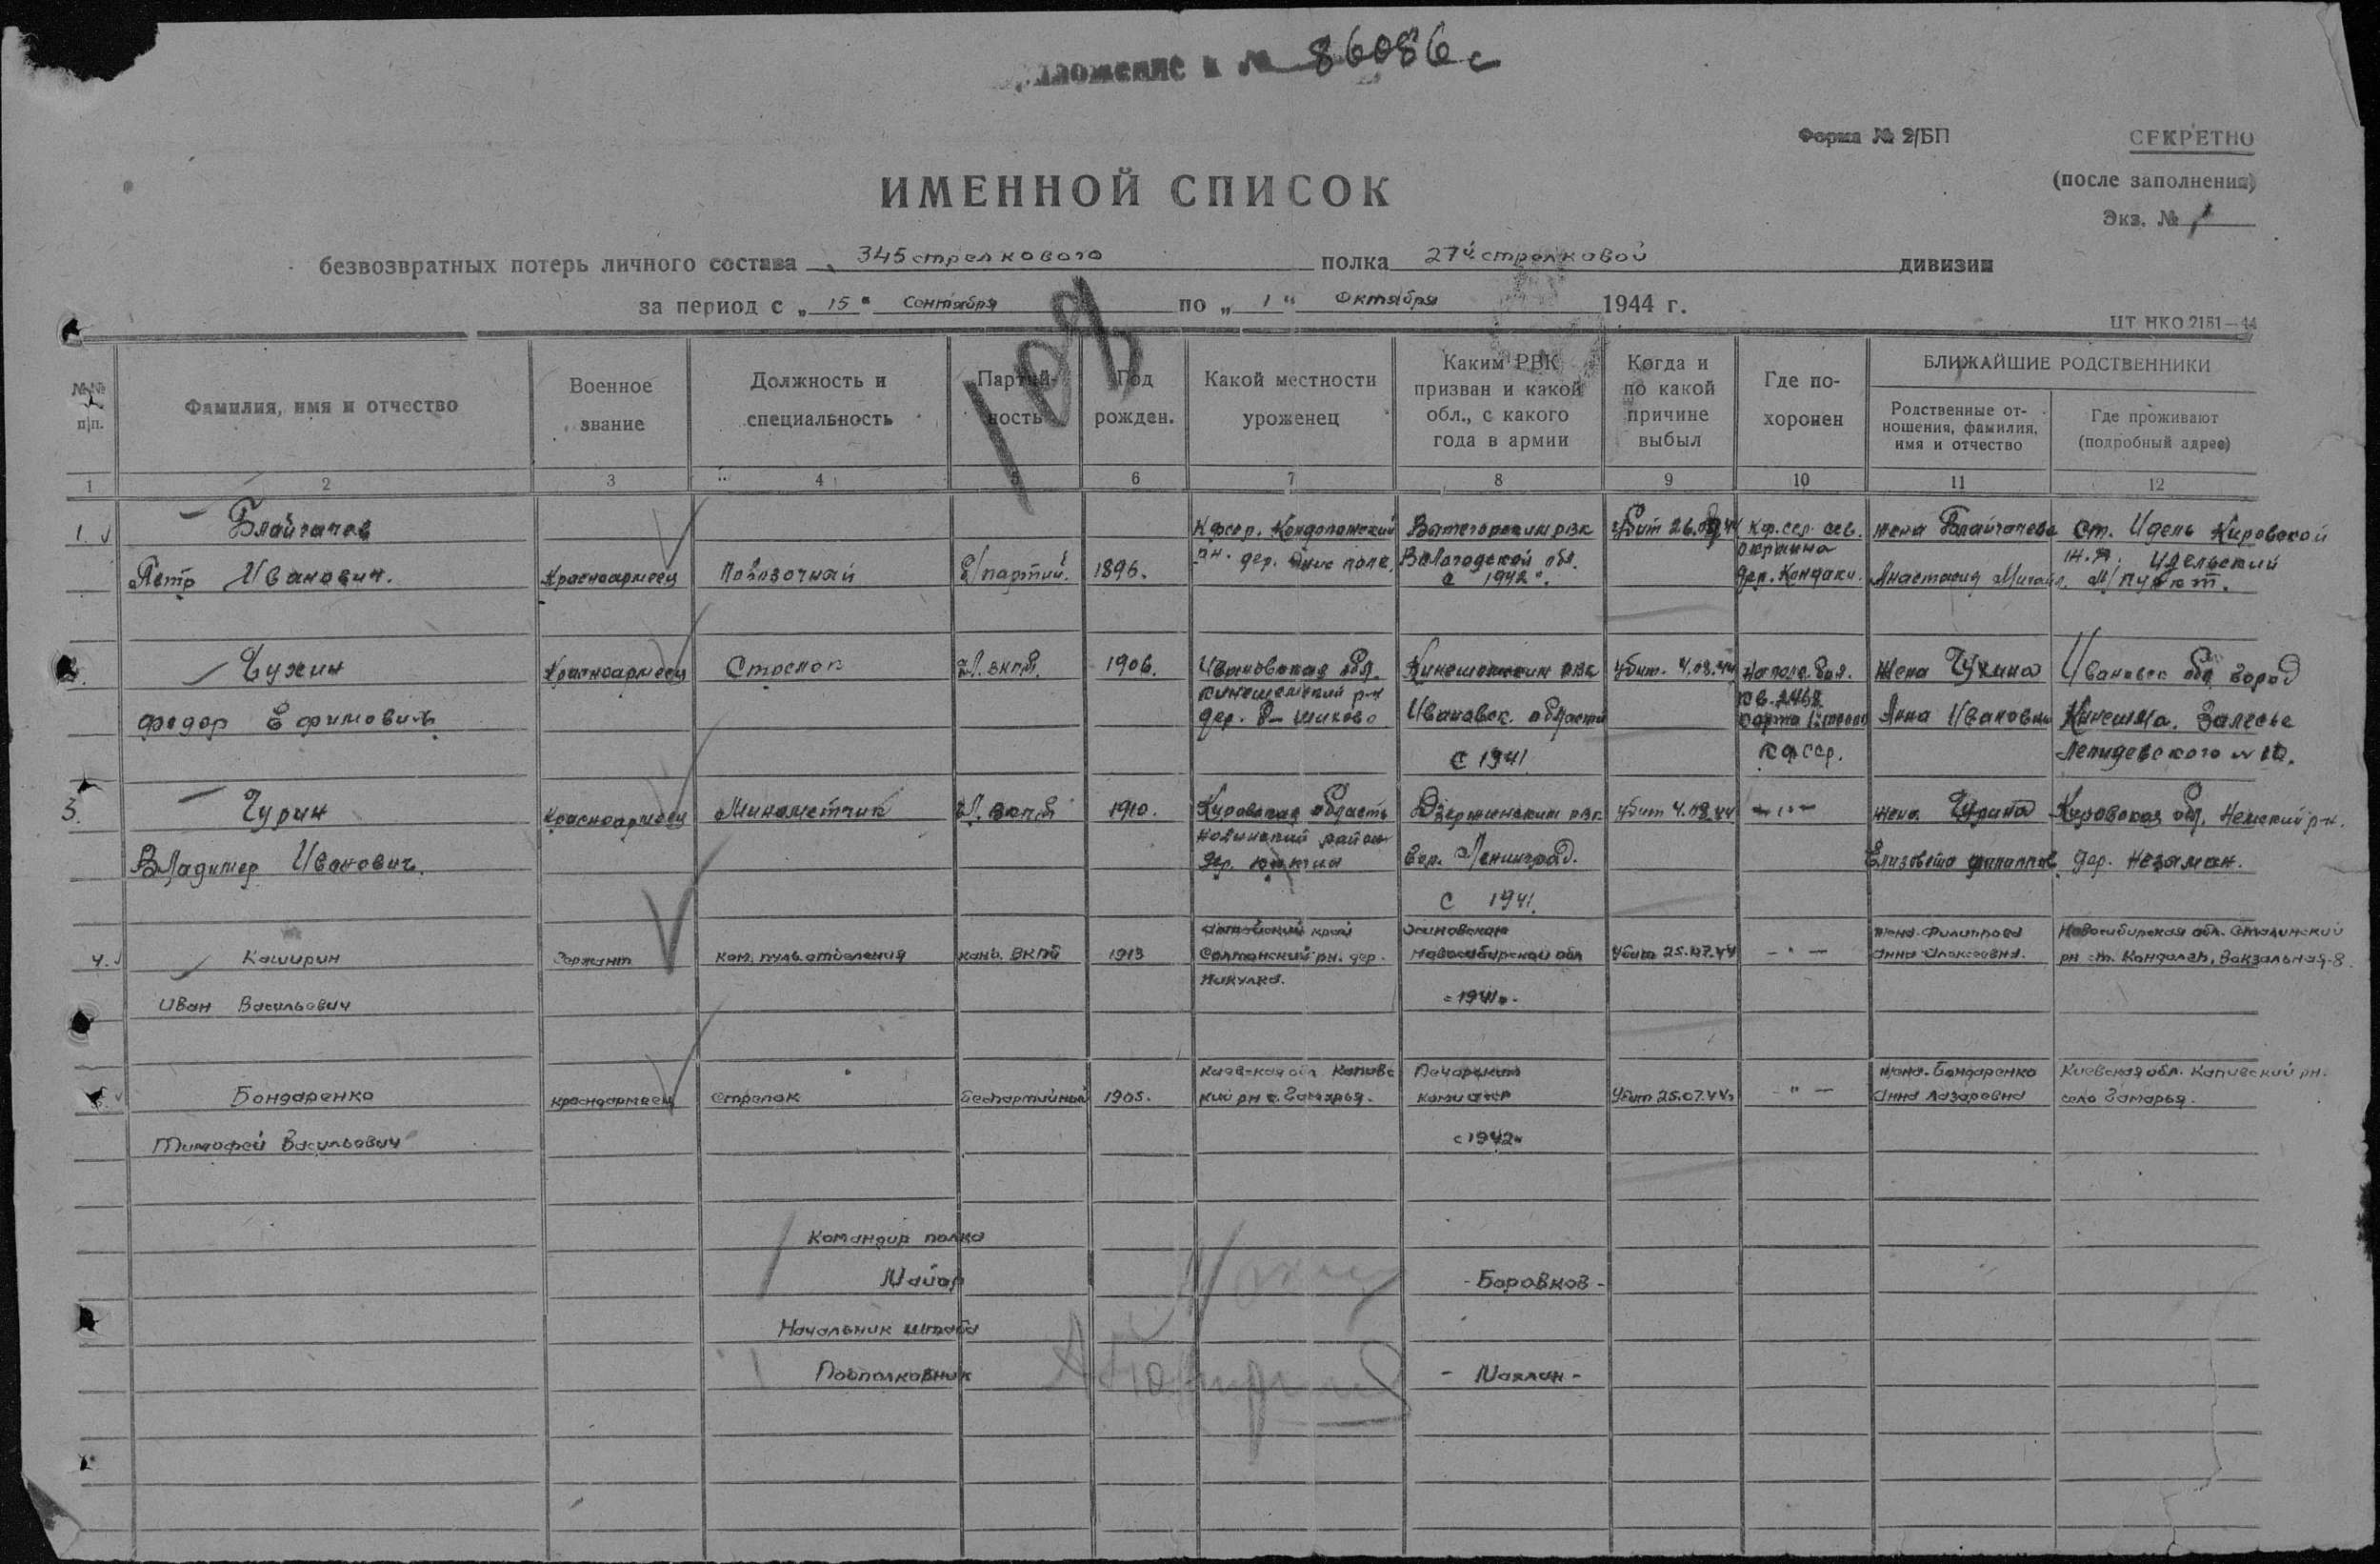 Приложение к № 86086с
Форма № 2/БП
СЕКРЕТНО
(после заполнения)
Экз. № 1
ИМЕННОЙ СПИСОК
безвозвратных потерь личного состава 345 стрелкового полка 27й стрелковой дивизии
за период с „ 15 " Сентября по „ 1 " Октября 1944 г.
108
ЦТ НКО 2151—44
№№ п/п.
Фамилия, имя и отчество
Военное звание
Должность и специальность
Партийность
Год рожден.
Какой местности уроженец
Каким РВК призван и какой обл., с какого года в армии
Когда и по какой причине выбыл
Где похоронен
БЛИЖАЙШИЕ РОДСТВЕННИКИ
Родственные отношения, фамилия, имя и отчество
Где проживают (подробный адрес)
1 2 3 4 5 6 7 8 9 10 11 12
1. Блайгачев Кфсср. Кондопожский Вытегорским рвк Убит 26. кф.сср. сев. жена Блайгачева Ст. Идель Кировской
окраина ж.д. Идельский
Петр Иванович. Красноармеец Повозочный Б/партий. 1896. рн. дер. поле. Вологодской обл. с 1942 г. дер. Кондаки. Анастасия Михайл. М/пункт.
2. Чужин Красноармеец Стрелок Чл. вкпб. 1906. Ивановская обл. Кинешемским рвк Убит. 4.08.44 На поле боя. Жена Чужина Ивановск обл город
Кинешемский р-н кв. 2468
Федор Ефимович дер. Ивановск. области карта Анна Ивановна Кинешма. Залесье
С 1941 КФССР. № 10.
3. Чурин Красноармеец Минометчик Чл. вкпб 1910. Кировская область Дзержинским рвк Убит 4.08.44 — " — жена Чурина Кировская обл. Немский р-н.
Нолинский район
Владимер Иванович. дер. гор. Ленинград. Елизовета Филиппов. дер. Незаман.
С 1941.
Алтайский край жена-Филиппова Новосибирская обл. Сталинский
4. Каширин Сержант ком. пуль. отделения канд. ВКПб 1913 Солтонский рн. дер. Новосибирской обл Убит 25.07.44 — " — Анна Алексеевна. рн ст. Кондалеп, Вокзальная-8.
Никулка.
Иван Васильевич с 1941г.
Киевская обл Каневс Печорским жена-Бондаренко Киевская обл. Каневский рн.
5. Бондаренко красноармеец Стрелок беспартийный 1905. кий рн с. Гамарья. Коми асср Убит 25.07.44г — " — Анна Лазаревна село Гамарья.
Тимофей Васильевич с 1942г
Командир полка
Майор - Боровков -
Начальник штаба
Подполковник - Махлин -